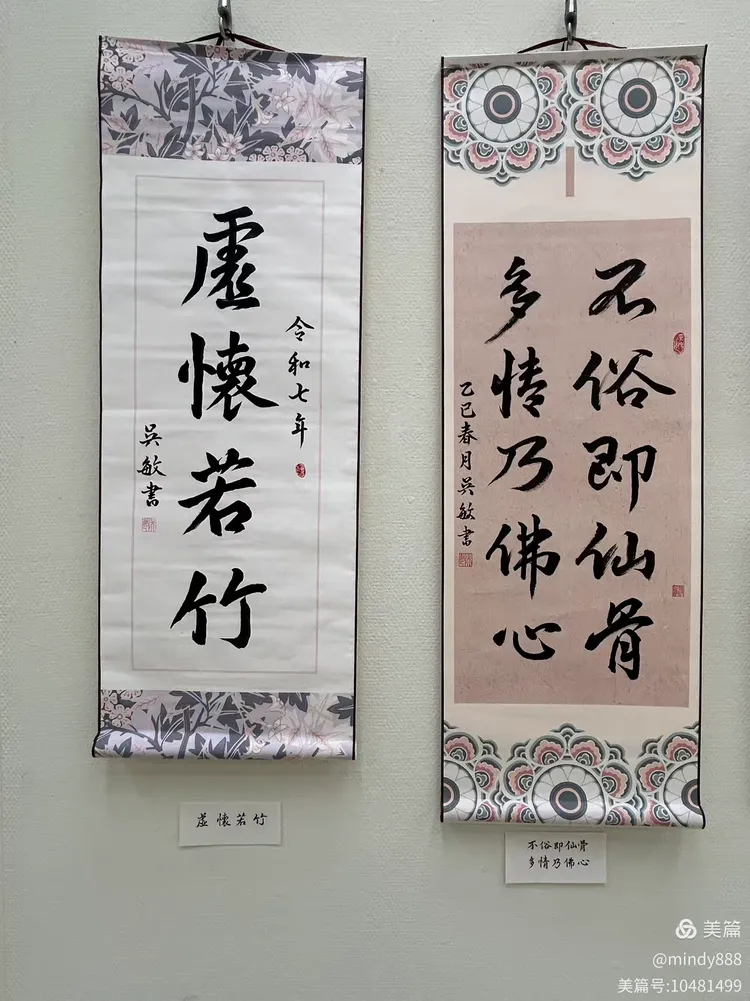 虛懷若竹
令和七年
吳敏書
虛懷若竹
不俗即仙骨
多情乃佛心
乙巳春月吳敏書
不俗即仙骨
多情乃佛心
美篇
@mindy888
美篇号:10481499